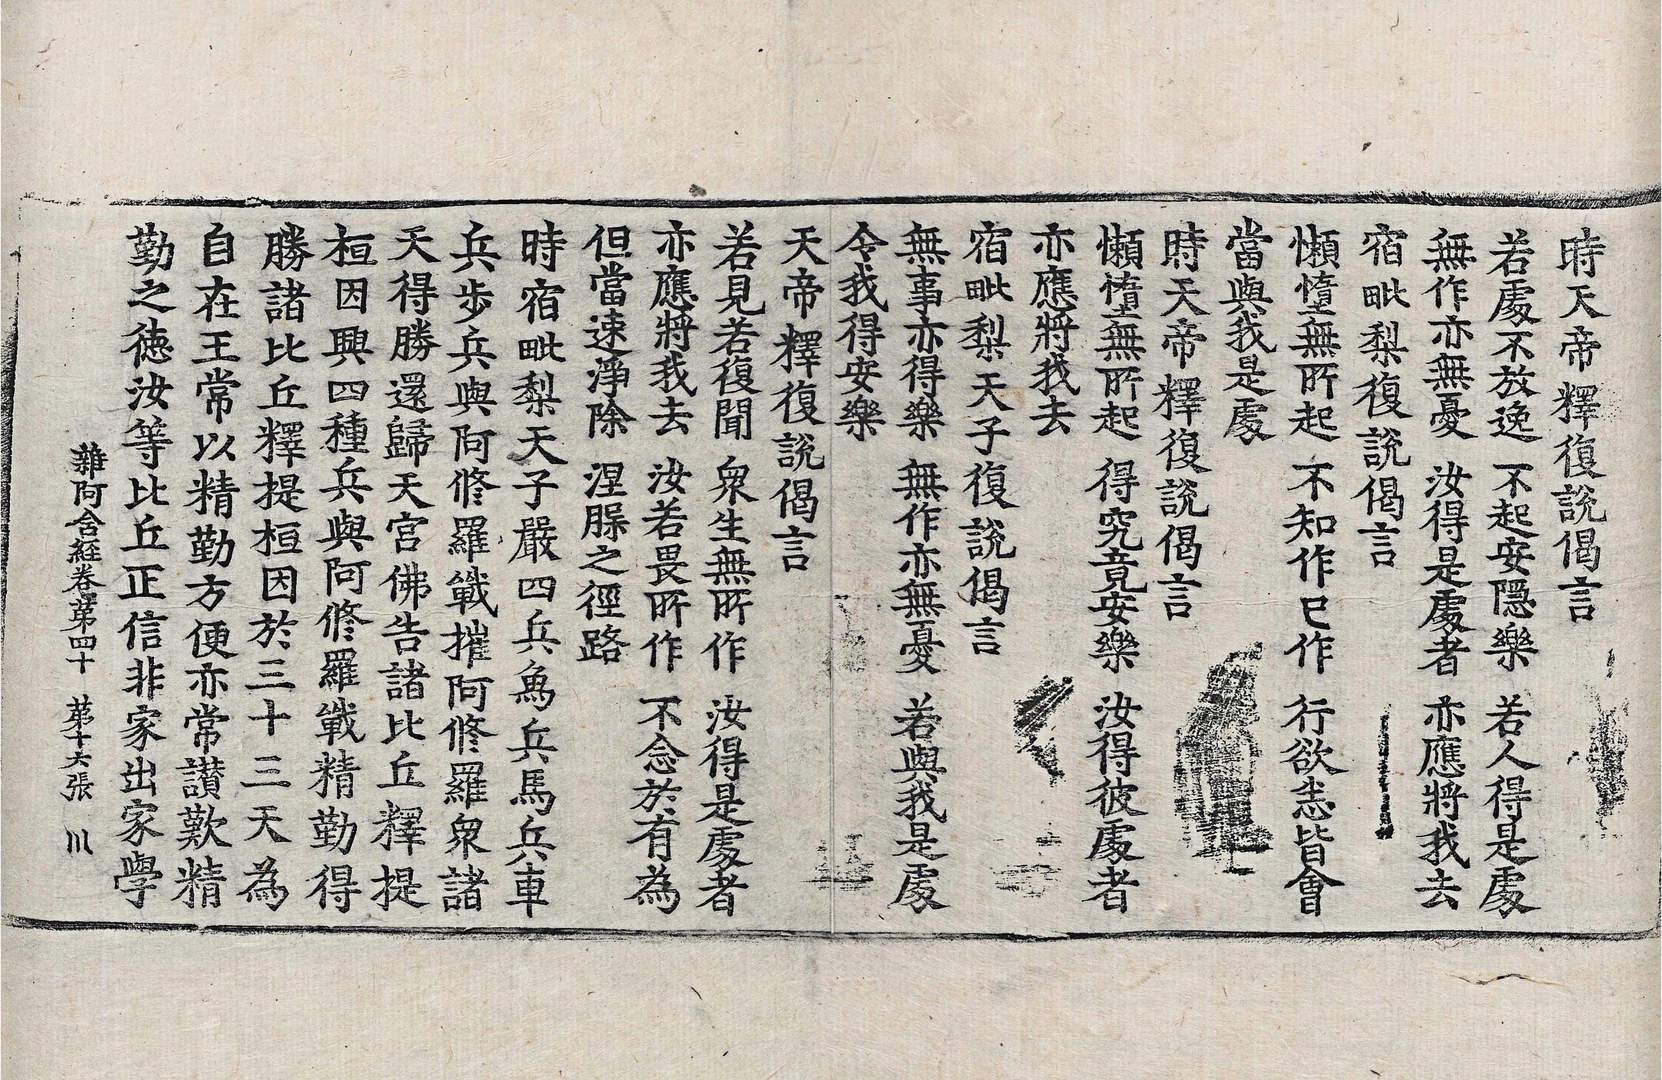 時天帝釋復說偈言
若處不放逸 不起安隱樂 若人得是處
無作亦無憂 汝得是處者 亦應將我去
宿毗梨復說偈言
懶憜無所起 不知作已作 行欲悉皆會
當與我是處
時天帝釋復說偈言
懶憜無所起 得究竟安樂 汝得彼處者
亦應將我去
宿毗梨天子復說偈言
無事亦得樂 無作亦無憂 若與我是處
令我得安樂
天帝釋復說偈言
若見若復聞 衆生無所作 汝得是處者
亦應將我去 汝若畏所作 不念於有為
但當速淨除 涅槃之徑路
時宿毗梨天子嚴四兵烏兵馬兵車
兵步兵與阿修羅戰摧阿修羅衆諸
天得勝還歸天宮佛告諸比丘釋提
桓因興四種兵與阿修羅戰精勤得
勝諸比丘釋提桓因於三十三天為
自在王常以精勤方便亦常讃歎精
勤之德汝等比丘正信非家出家學
雜阿含経卷第四十 第十六張 川